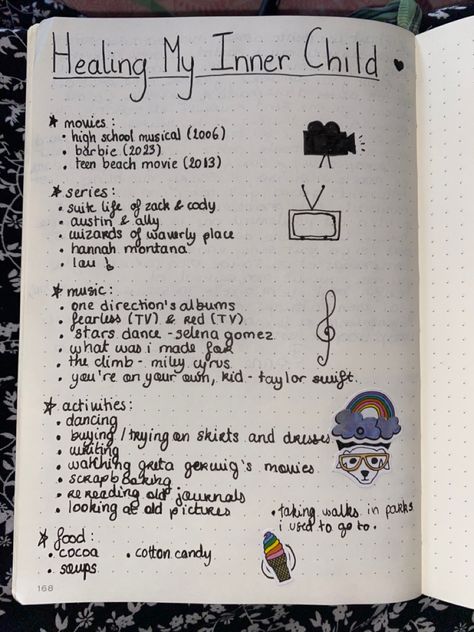 Healing My Inner Child
movies:
• high school musical (2006)
• barbie (2023)
• teen beach movie (2013)
series:
• suite life of zack & cody
• austin & ally
• wizards of waverly place
• hannah montana
• lou !
music:
• one direction's albums
• fearless (TV) & red (TV)
• stars dance - selena gomez
• what was i made for
• the climb - miley cyrus
• you're on your own, kid - taylor swift
activities:
• dancing
• buying / trying on skirts and dresses
• writing
• watching greta gerwig's movies
• scrapbooking
• rereading old journals
• looking at old pictures
• taking walks in parks
i used to go to.
food:
• cocoa • cotton candy
• soups
168